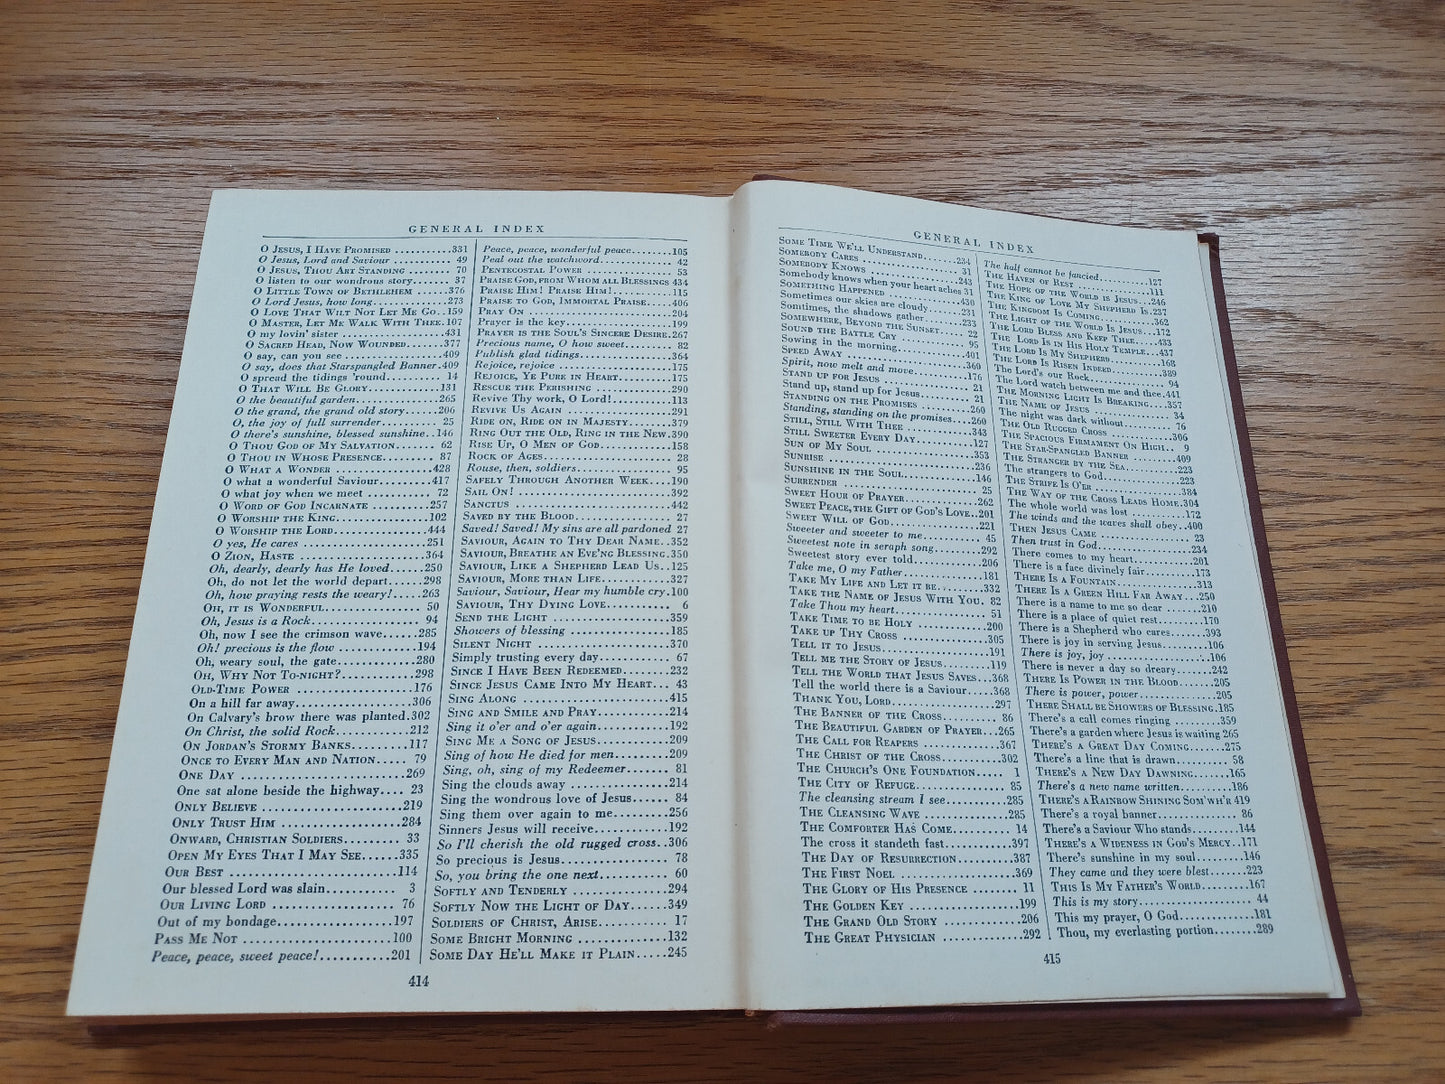 GENERAL INDEX
O Jesus, I Have Promised ...........331
O Jesus, Lord and Saviour ......... 49
O Jesus, Thou Art Standing ........ 70
O listen to our wondrous story...... 37
O Little Town of Bethlehem .......376
O Lord Jesus, how long.............273
O Love That Wilt Not Let Me Go..159
O Master, Let Me Walk With Thee.107
O my lovin' sister ..................431
O Sacred Head, Now Wounded.......377
O say, can you see .................409
O say, does that Starspangled Banner.409
O spread the tidings 'round.......... 14
O That Will Be Glory..............131
O the beautiful garden..............265
O the grand, the grand old story.....206
O, the joy of full surrender.......... 25
O there's sunshine, blessed sunshine..146
O Thou God of My Salvation....... 62
O Thou in Whose Presence......... 87
O What a Wonder .................428
O what a wonderful Saviour........417
O what joy when we meet .......... 72
O Word of God Incarnate ..........257
O Worship the King...............102
O Worship the Lord...............444
O yes, He cares ....................251
O Zion, Haste ....................364
Oh, dearly, dearly has He loved.....250
Oh, do not let the world depart......298
Oh, how praying rests the weary!....263
Oh, it is Wonderful............... 50
Oh, Jesus is a Rock................. 94
Oh, now I see the crimson wave......285
Oh! precious is the flow ............194
Oh, weary soul, the gate............280
Oh, Why Not To-night?...........298
Old-Time Power ..................176
On a hill far away..................306
On Calvary's brow there was planted.302
On Christ, the solid Rock...........212
On Jordan's Stormy Banks.........117
Once to Every Man and Nation..... 79
One Day .........................269
One sat alone beside the highway.... 23
Only Believe .....................219
Only Trust Him ..................284
Onward, Christian Soldiers........ 33
Open My Eyes That I May See......335
Our Best .........................114
Our blessed Lord was slain.......... 3
Our Living Lord .................. 76
Out of my bondage.................197
Pass Me Not .....................100
Peace, peace, sweet peace!...........201
Peace, peace, wonderful peace.......105
Peal out the watchword............. 42
Pentecostal Power ................ 53
Praise God, from Whom all Blessings 434
Praise Him! Praise Him!..........115
Praise to God, Immortal Praise....406
Pray On .........................204
Prayer is the key...................199
Prayer is the Soul's Sincere Desire.267
Precious name, O how sweet......... 82
Publish glad tidings................364
Rejoice, rejoice ....................175
Rejoice, Ye Pure in Heart.........175
Rescue the Perishing .............290
Revive Thy work, O Lord!..........113
Revive Us Again .................291
Ride on, Ride on in Majesty.......379
Ring Out the Old, Ring in the New.390
Rise Up, O Men of God............158
Rock of Ages..................... 28
Rouse, then, soldiers............... 95
Safely Through Another Week....190
Sail On! ........................392
Sanctus .........................442
Saved by the Blood............... 27
Saved! Saved! My sins are all pardoned 27
Saviour, Again to Thy Dear Name..352
Saviour, Breathe an Eve'ng Blessing.350
Saviour, Like a Shepherd Lead Us..125
Saviour, More than Life..........327
Saviour, Saviour, Hear my humble cry.100
Saviour, Thy Dying Love.......... 6
Send the Light ...................359
Showers of blessing ................185
Silent Night .....................370
Simply trusting every day........... 67
Since I Have Been Redeemed.......232
Since Jesus Came Into My Heart... 43
Sing Along .......................415
Sing and Smile and Pray..........214
Sing it o'er and o'er again...........192
Sing Me a Song of Jesus...........209
Sing of how He died for men........209
Sing, oh, sing of my Redeemer....... 81
Sing the clouds away ...............214
Sing the wondrous love of Jesus...... 84
Sing them over again to me..........256
Sinners Jesus will receive............192
So I'll cherish the old rugged cross..306
So precious is Jesus................. 78
So, you bring the one next.......... 60
Softly and Tenderly ..............294
Softly Now the Light of Day......349
Soldiers of Christ, Arise.......... 17
Some Bright Morning .............132
Some Day He'll Make it Plain.....245
414
GENERAL INDEX
Some Time We'll Understand.......234
Somebody Cares .................. 31
Somebody Knows .................243
Somebody knows when your heart aches 31
Something Happened .............430
Sometimes our skies are cloudy......231
Somtimes, the shadows gather.......233
Somewhere, Beyond the Sunset..... 22
Sound the Battle Cry ............. 95
Sowing in the morning..............401
Speed Away ......................360
Spirit, now melt and move..........176
Stand up for Jesus ............... 21
Stand up, stand up for Jesus......... 21
Standing on the Promises .........260
Standing, standing on the promises...260
Still, Still With Thee ............343
Still Sweeter Every Day...........127
Sun of My Soul ..................353
Sunrise ..........................236
Sunshine in the Soul..............146
Surrender ........................ 25
Sweet Hour of Prayer.............262
Sweet Peace, the Gift of God's Love..201
Sweet Will of God ...............221
Sweeter and sweeter to me........... 45
Sweetest note in seraph song.........292
Sweetest story ever told.............206
Take me, O my Father..............181
Take My Life and Let it be........332
Take the Name of Jesus With You. 82
Take Thou my heart................ 51
Take Time to be Holy ............200
Take up Thy Cross ...............305
Tell it to Jesus...................191
Tell me the Story of Jesus........119
Tell the World that Jesus Saves...368
Tell the world there is a Saviour.....368
Thank You, Lord..................297
The Banner of the Cross.......... 86
The Beautiful Garden of Prayer...265
The Call for Reapers .............367
The Christ of the Cross..........302
The Church's One Foundation..... 1
The City of Refuge............... 85
The cleansing stream I see...........285
The Cleansing Wave ..............285
The Comforter Has Come.......... 14
The cross it standeth fast............397
The Day of Resurrection..........387
The First Noel ...................369
The Glory of His Presence ........ 11
The Golden Key ..................199
The Grand Old Story .............206
The Great Physician .............292
The half cannot be fancied..........127
The Haven of Rest ...............111
The Hope of the World is Jesus...246
The King of Love My Shepherd Is.237
The Kingdom Is Coming...........362
The Light of the World Is Jesus...172
The Lord Bless and Keep Thee....433
The Lord Is in His Holy Temple...437
The Lord Is My Shepherd.........168
The Lord Is Risen Indeed.........389
The Lord's our Rock................ 94
The Lord watch between me and thee.441
The Morning Light Is Breaking....357
The Name of Jesus ............... 34
The night was dark without.......... 76
The Old Rugged Cross ............306
The Spacious Firmament On High.. 9
The Star-Spangled Banner ........409
The Stranger by the Sea..........223
The strangers to God...............223
The Strife Is O'er ................384
The Way of the Cross Leads Home.304
The whole world was lost ...........172
The winds and the waves shall obey..400
Then Jesus Came ................. 23
Then trust in God..................234
There comes to my heart............201
There is a face divinely fair..........173
There Is a Fountain...............313
There Is a Green Hill Far Away...250
There is a name to me so dear .......210
There is a place of quiet rest.........170
There is a Shepherd who cares.......393
There is joy in serving Jesus.........106
There is joy, joy ...................106
There is never a day so dreary.......242
There Is Power in the Blood.......205
There is power, power..............205
There Shall be Showers of Blessing.185
There's a call comes ringing .........359
There's a garden where Jesus is waiting 265
There's a Great Day Coming.......275
There's a line that is drawn.......... 58
There's a New Day Dawning.......165
There's a new name written.........186
There's a Rainbow Shining Som'wh'r 419
There's a royal banner.............. 86
There's a Saviour Who stands.......144
There's a Wideness in God's Mercy..171
There's sunshine in my soul.........146
They came and they were blest.......223
This Is My Father's World........167
This is my story.................... 44
This my prayer, O God..............181
Thou, my everlasting portion........289
415